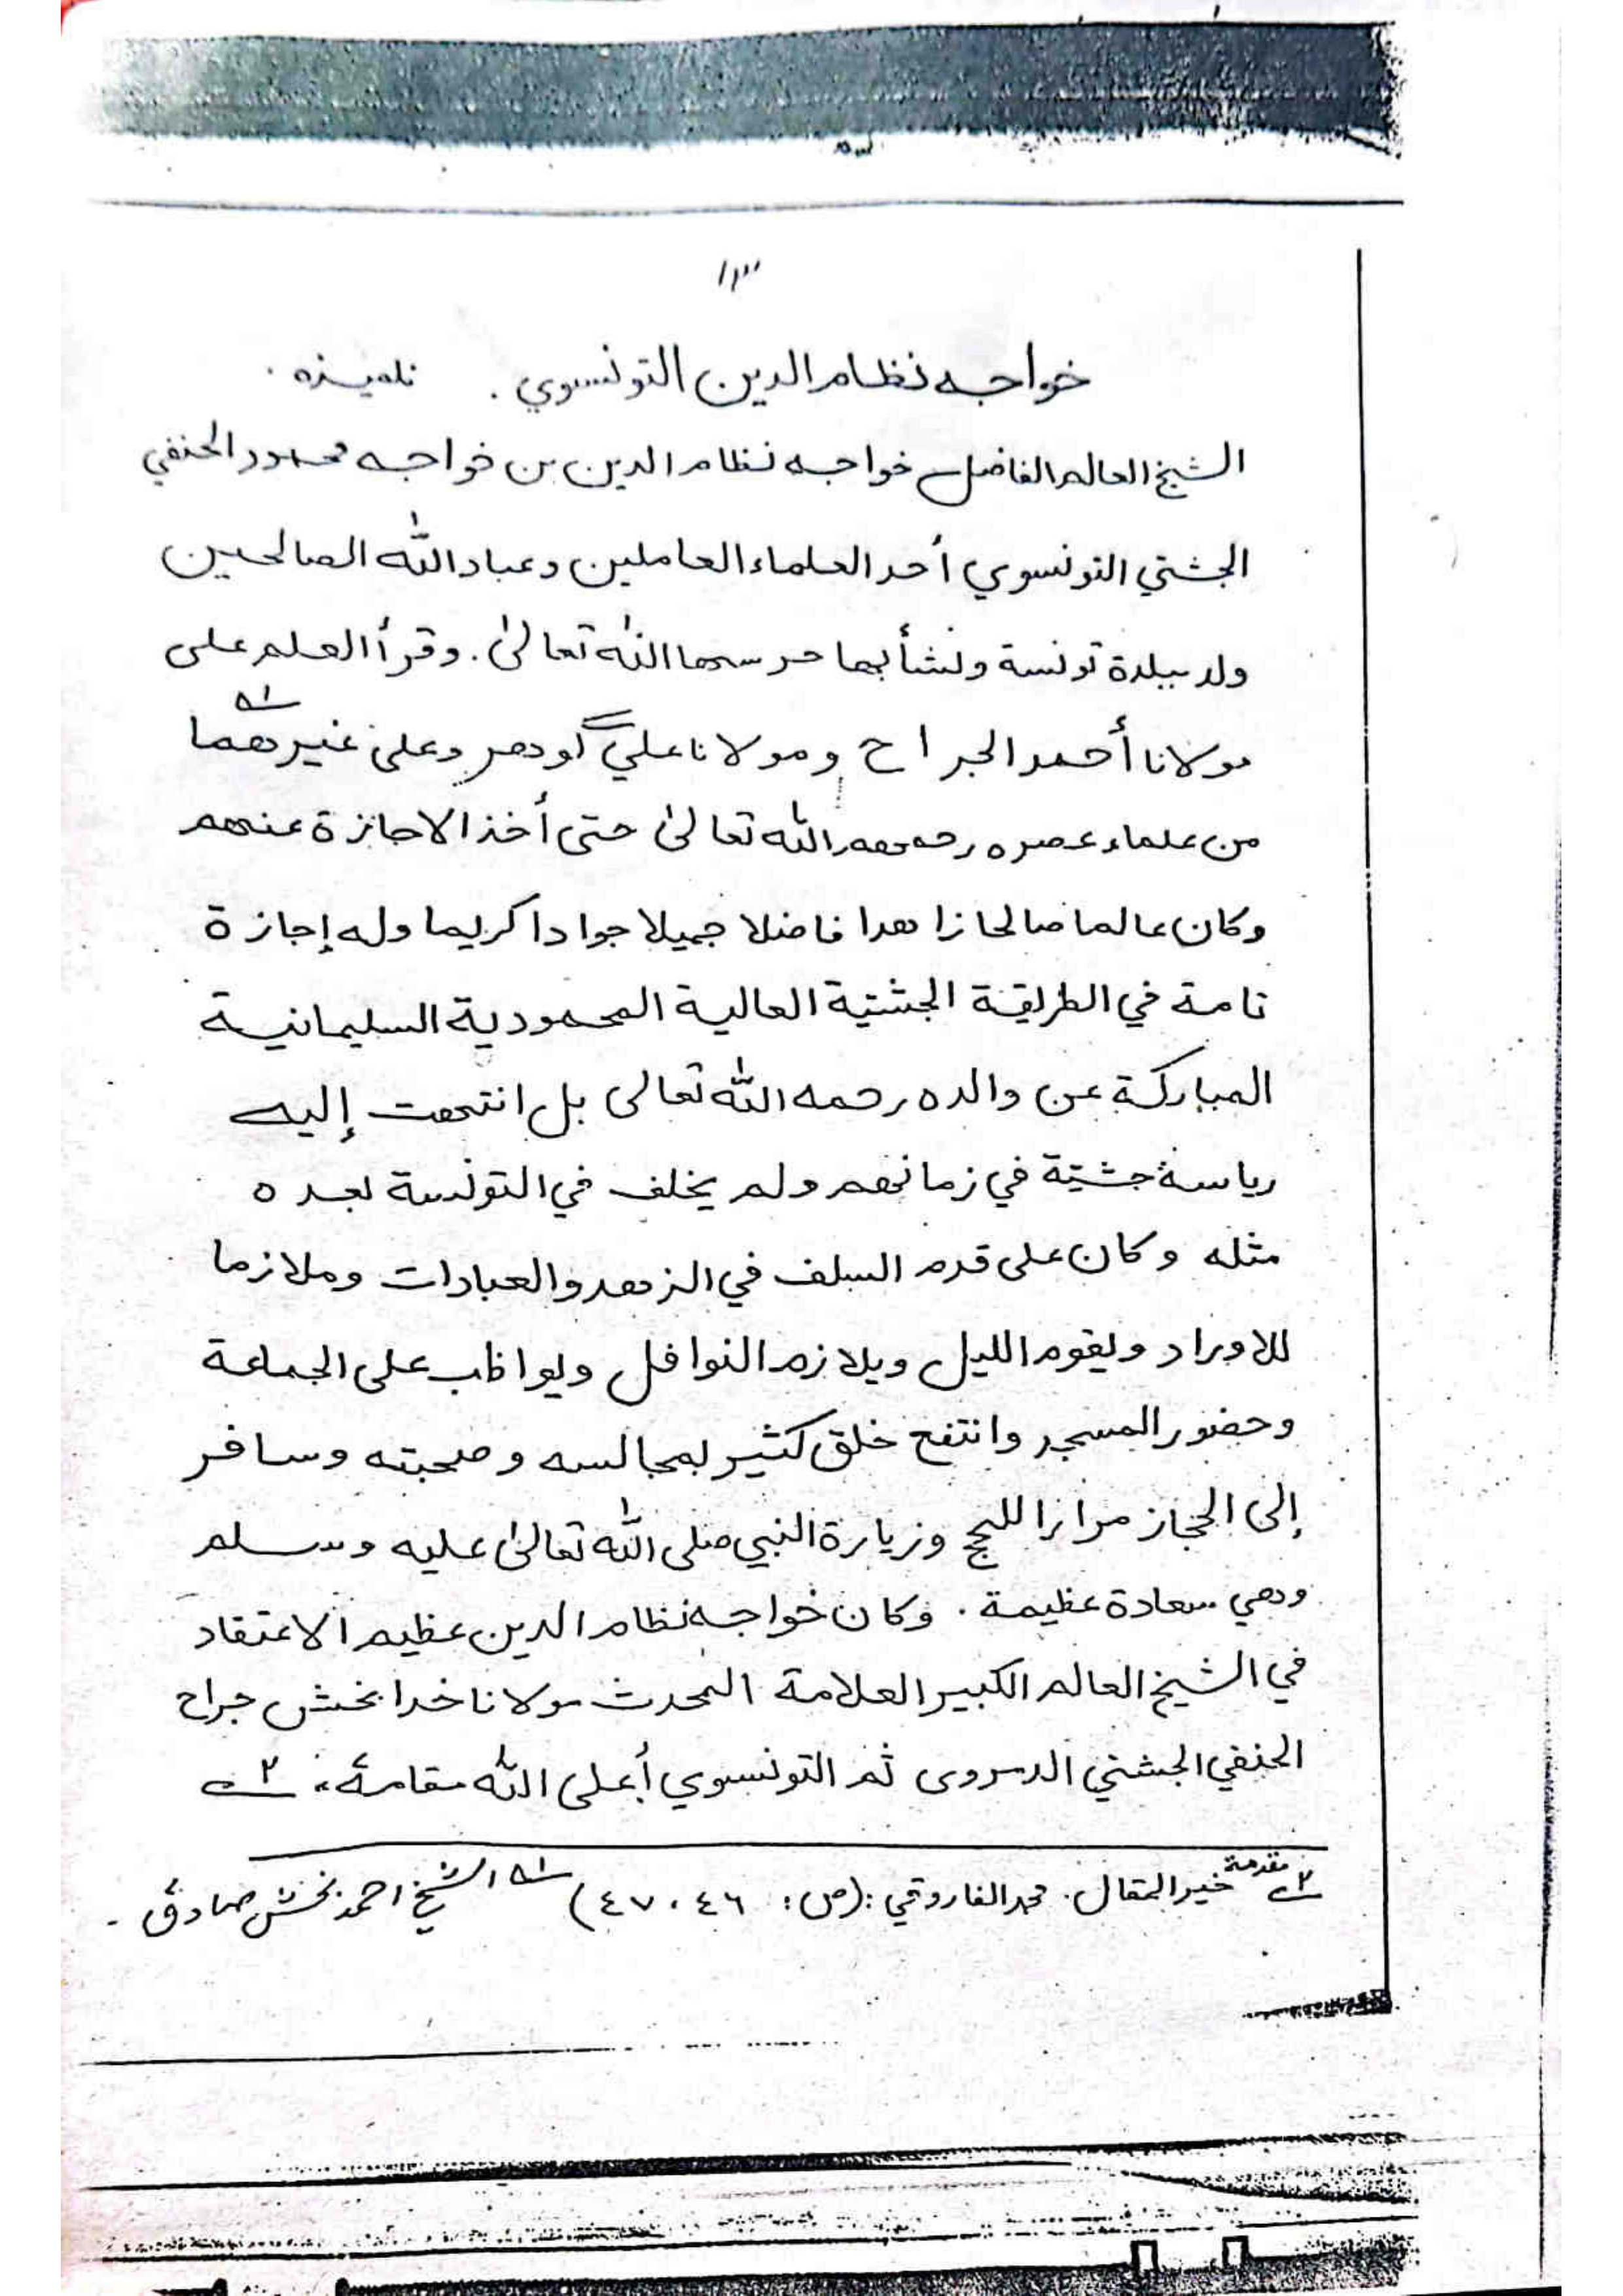 ١٣
خواجه نظام الدين التونسوي . تلميذه .
الشيخ العالم الفاضل خواجه نظام الدين بن خواجه محمود الحنفي
الجشتي التونسوي أحد العلماء العاملين وعباد الله الصالحين
ولد ببلدة تونسة ونشأ بها حرسها الله تعالىٰ . وقرأ العلم على
مولانا أحمد الجراح ومولانا علي گوهر وعلىٰ غيرهما ١ے
من علماء عصره رحمهم الله تعالىٰ حتى أخذ الاجازة عنهم
وكان عالما صالحا زاهدا فاضلا جميلا جوادا كريما وله إجازة
تامة في الطريقة الجشتية العالية المحمودية السليمانية
المباركة عن والده رحمه الله تعالى بل انتهت إليه
رياسة جشتية في زمانهم ولم يخلف في التونسة بعده
مثله وكان على قدم السلف في الزهد والعبادات وملازما
للاوراد ويقوم الليل ويلازم النوافل ويواظب على الجماعة
وحضور المسجد وانتفع خلق كثير بمجالسه وصحبته وسافر
إلى الحجاز مرارا للحج وزيارة النبي صلى الله تعالىٰ عليه وسلم
وهي سعادة عظيمة . وكان خواجه نظام الدين عظيم الاعتقاد
في الشيخ العالم الكبير العلامة المحدث مولانا خدا بخش جراح
الحنفي الجشتي ثم التونسوي أعلى الله مقامه ،، ٢ے
٢ے مقدمة خير المقال . محمد الفاروقي : (ص : ٤٦ ، ٤٧) ١ے الشيخ احمد بخش صادق .